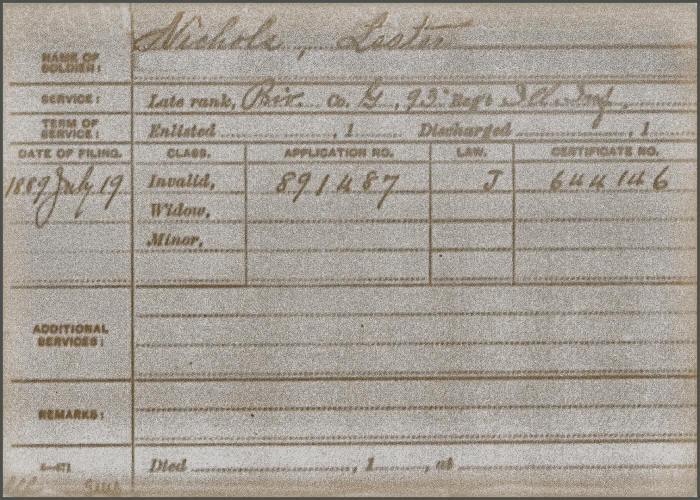 Nichols, Lester
NAME OF SOLDIER:
SERVICE: Late rank, Priv. Co. G, 93" Reg't Ill. Inf.
TERM OF SERVICE: Enlisted , 1 Discharged , 1
DATE OF FILING. CLASS. APPLICATION NO. LAW. CERTIFICATE NO.
1889 July 19 Invalid, 891487 J 644146
Widow,
Minor,
ADDITIONAL SERVICES:
REMARKS:
Died , 1 , at